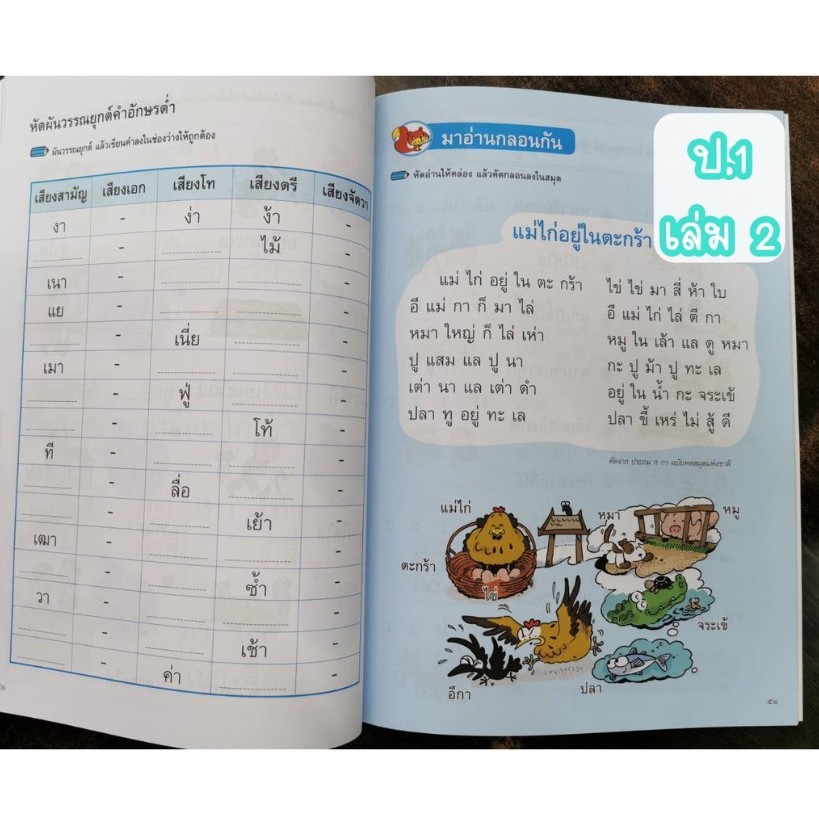 หัดผันวรรณยุกต์คำอักษรต่ำ
ผันวรรณยุกต์ แล้วเขียนคำลงในช่องว่างให้ถูกต้อง
เสียงสามัญ เสียงเอก เสียงโท เสียงตรี เสียงจัตวา
งา - ง่า ง้า -
- ไม้ -
เนา - -
แย - -
- เนี่ย -
เมา - -
- ฟู่ -
- โท้ -
ที - -
- ลื่อ -
- เย้า -
เฒา - -
- ซ้ำ -
วา - -
- เช้า -
- ค่า -
มาอ่านกลอนกัน
หัดอ่านให้คล่อง แล้วคัดกลอนลงในสมุด
ป.1
เล่ม 2
แม่ไก่อยู่ในตะกร้า
แม่ ไก่ อยู่ ใน ตะ กร้า ไข่ ไข่ มา สี่ ห้า ใบ
อี แม่ กา ก็ มา ไล่ อี แม่ ไก่ ไล่ ตี กา
หมา ใหญ่ ก็ ไล่ เห่า หมู ใน เล้า แล ดู หมา
ปู แสม แล ปู นา กะ ปู ม้า ปู ทะ เล
เต่า นา แล เต่า ดำ อยู่ ใน น้ำ กะ จระเข้
ปลา ทู อยู่ ทะ เล ปลา ขี้ เหร่ ไม่ สู้ ดี
คัดจาก ประถม ก กา ฉบับหอสมุดแห่งชาติ
แม่ไก่
หมา
หมู
ตะกร้า
ไข่
จระเข้
อีกา
ปลา
๕๑